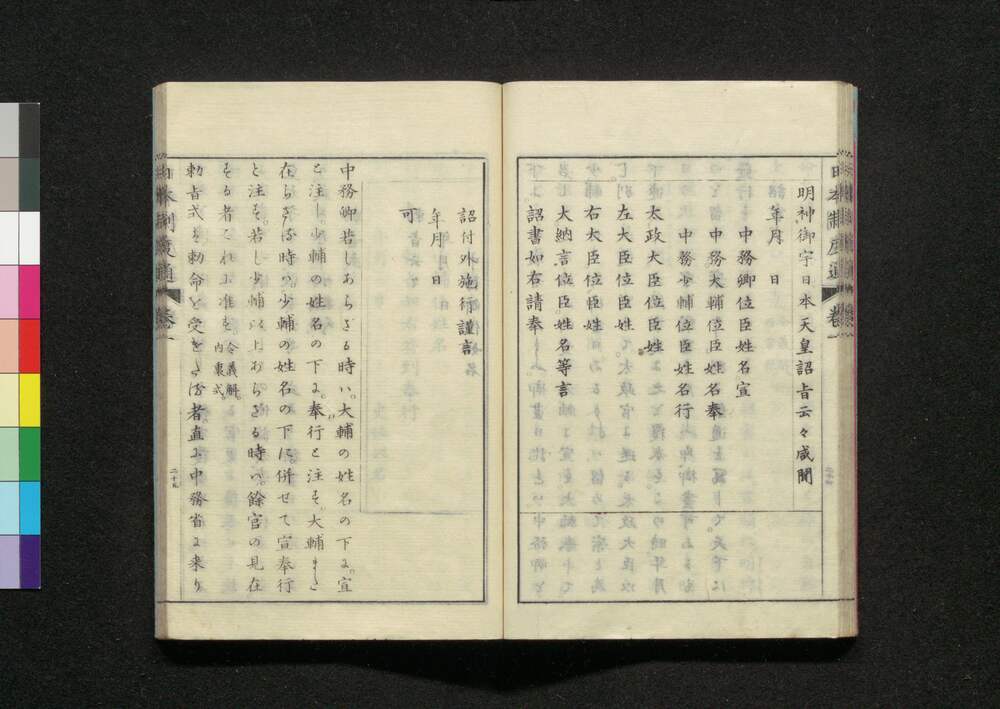 明神御宇日本天皇詔旨云々咸聞
年月　日
中務卿位臣姓名宣
中務大輔位臣姓名奉
中務少輔位臣姓名行
太政大臣位臣姓
左大臣位臣姓
右大臣位臣姓
大納言位臣姓名等言
詔書如右請奉
詔付外施行謹言
年月日
可
中務卿若しあらざる時ハ。大輔の姓名の下に。宣
と注し少輔の姓名の下に。奉行と注す。大輔また
在らざる時ハ少輔の姓名の下に併せて宣奉行
と注す。若し少輔以上あらざる時ハ餘官の見在
する者これに准ず。令義解。内裏式。
勅旨式を勅命を受る者。直に中務省に来り
日本制度通
巻一
二十九